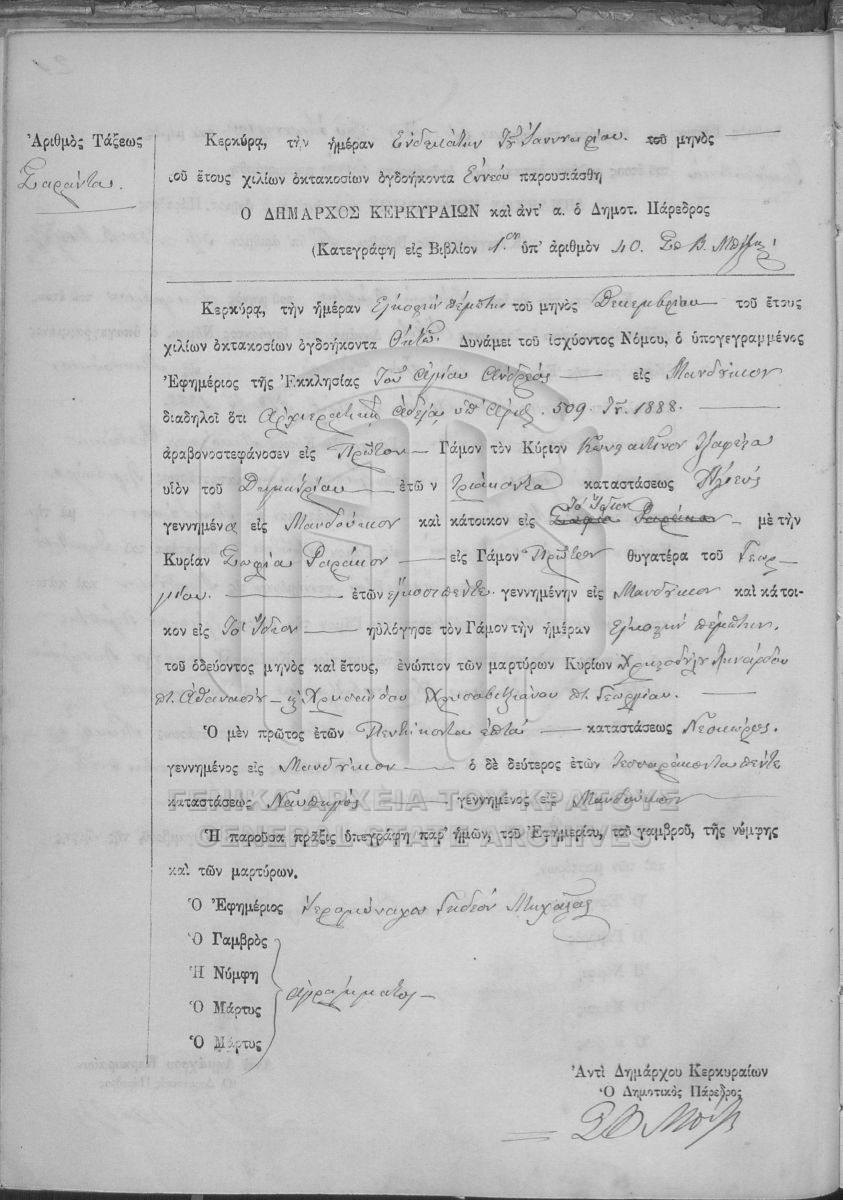 Ἀριθμὸς Τάξεως
Σαράντα.
Κερκύρᾳ, τὴν ἡμέραν Ἑνδεκάτην τοῦ Ἰαννουαρίου. τοῦ μηνὸς
τοῦ ἔτους χιλίων ὀκτακοσίων ὀγδοήκοντα Ἐννέα παρουσιάσθη
Ὁ ΔΗΜΑΡΧΟΣ ΚΕΡΚΥΡΑΙΩΝ καὶ ἀντ' α. ὁ Δημοτ. Πάρεδρος
(Κατεγράφη εἰς Βιβλίον 1.ον ὑπ' ἀριθμὸν 40.
Κερκύρᾳ, τὴν ἡμέραν Εἰκοστὴν πέμπτην τοῦ μηνὸς Δεκεμβρίου τοῦ ἔτους
χιλίων ὀκτακοσίων ὀγδοήκοντα Ὀκτώ. Δυνάμει τοῦ ἰσχύοντος Νόμου, ὁ ὑπογεγραμμένος
Ἐφημέριος τῆς Ἐκκλησίας τοῦ Ἁγίου Ἀνδρέας εἰς Μανδύκιον
διαδηλοῖ ὅτι Ἀρχιερατικῇ ἀδείᾳ ὑπ' ἀριθ. 509. τοῦ. 1888.
ἀραβονοστεφάνοσεν εἰς Πρῶτον Γάμον τὸν Κύριον Κωνσταντῖνον
υἱὸν τοῦ Δημητρίου ἐτῶν τριάκοντα καταστάσεως Ἁλιεὺς
γεννημένον εἰς Μανδοῦκιον καὶ κάτοικον εἰς Τὸ Ἴδιον μὲ τὴν
Κυρίαν Σοφία Ραράκου εἰς Γάμον Πρῶτον θυγατέρα τοῦ Γεωρ
γίου. ἐτῶν εἴκοσι πέντε. γεννημένην εἰς Μανδύκιον καὶ κάτοι-
κον εἰς Τὸ Ἴδιον ηὐλόγησε τὸν Γάμον τὴν ἡμέραν Εἰκοστὴν πέμπτην.
τοῦ ὁδεύοντος μηνὸς καὶ ἔτους, ἐνώπιον τῶν μαρτύρων Κυρίων
π. Ἀθανασίου κ Χρυσάνθου π. Γεωργίου.
Ὁ μὲν πρῶτος ἐτῶν Πεντήκοντα ἑπτά καταστάσεως Νεοκώρος.
γεννημένος εἰς Μανδύκιον ὁ δὲ δεύτερος ἐτῶν τεσσαράκοντα πέντε
καταστάσεως Ναυπηγὸς γεννημένος εἰς Μανδούκιον
ΓΕΝΙΚΑ ΑΡΧΕΙΑ ΤΟΥ ΚΡΑΤΟΥΣ
GENERAL STATE ARCHIVES
Ἡ παροῦσα πρᾶξις ὑπεγράφη παρ' ἡμῶν, τοῦ Ἐφημερίου, τοῦ γαμβροῦ, τῆς νύμφης
καὶ τῶν μαρτύρων.
Ὁ Ἐφημέριος Ἱερομόναχος Γεδεὸν
Ὁ Γαμβρὸς
Ἡ Νύμφη
ἀγράμματοι
Ὁ Μάρτυς
Ὁ Μάρτυς
Ἀντὶ Δημάρχου Κερκυραίων
Ὁ Δημοτικὸς Πάρεδρος